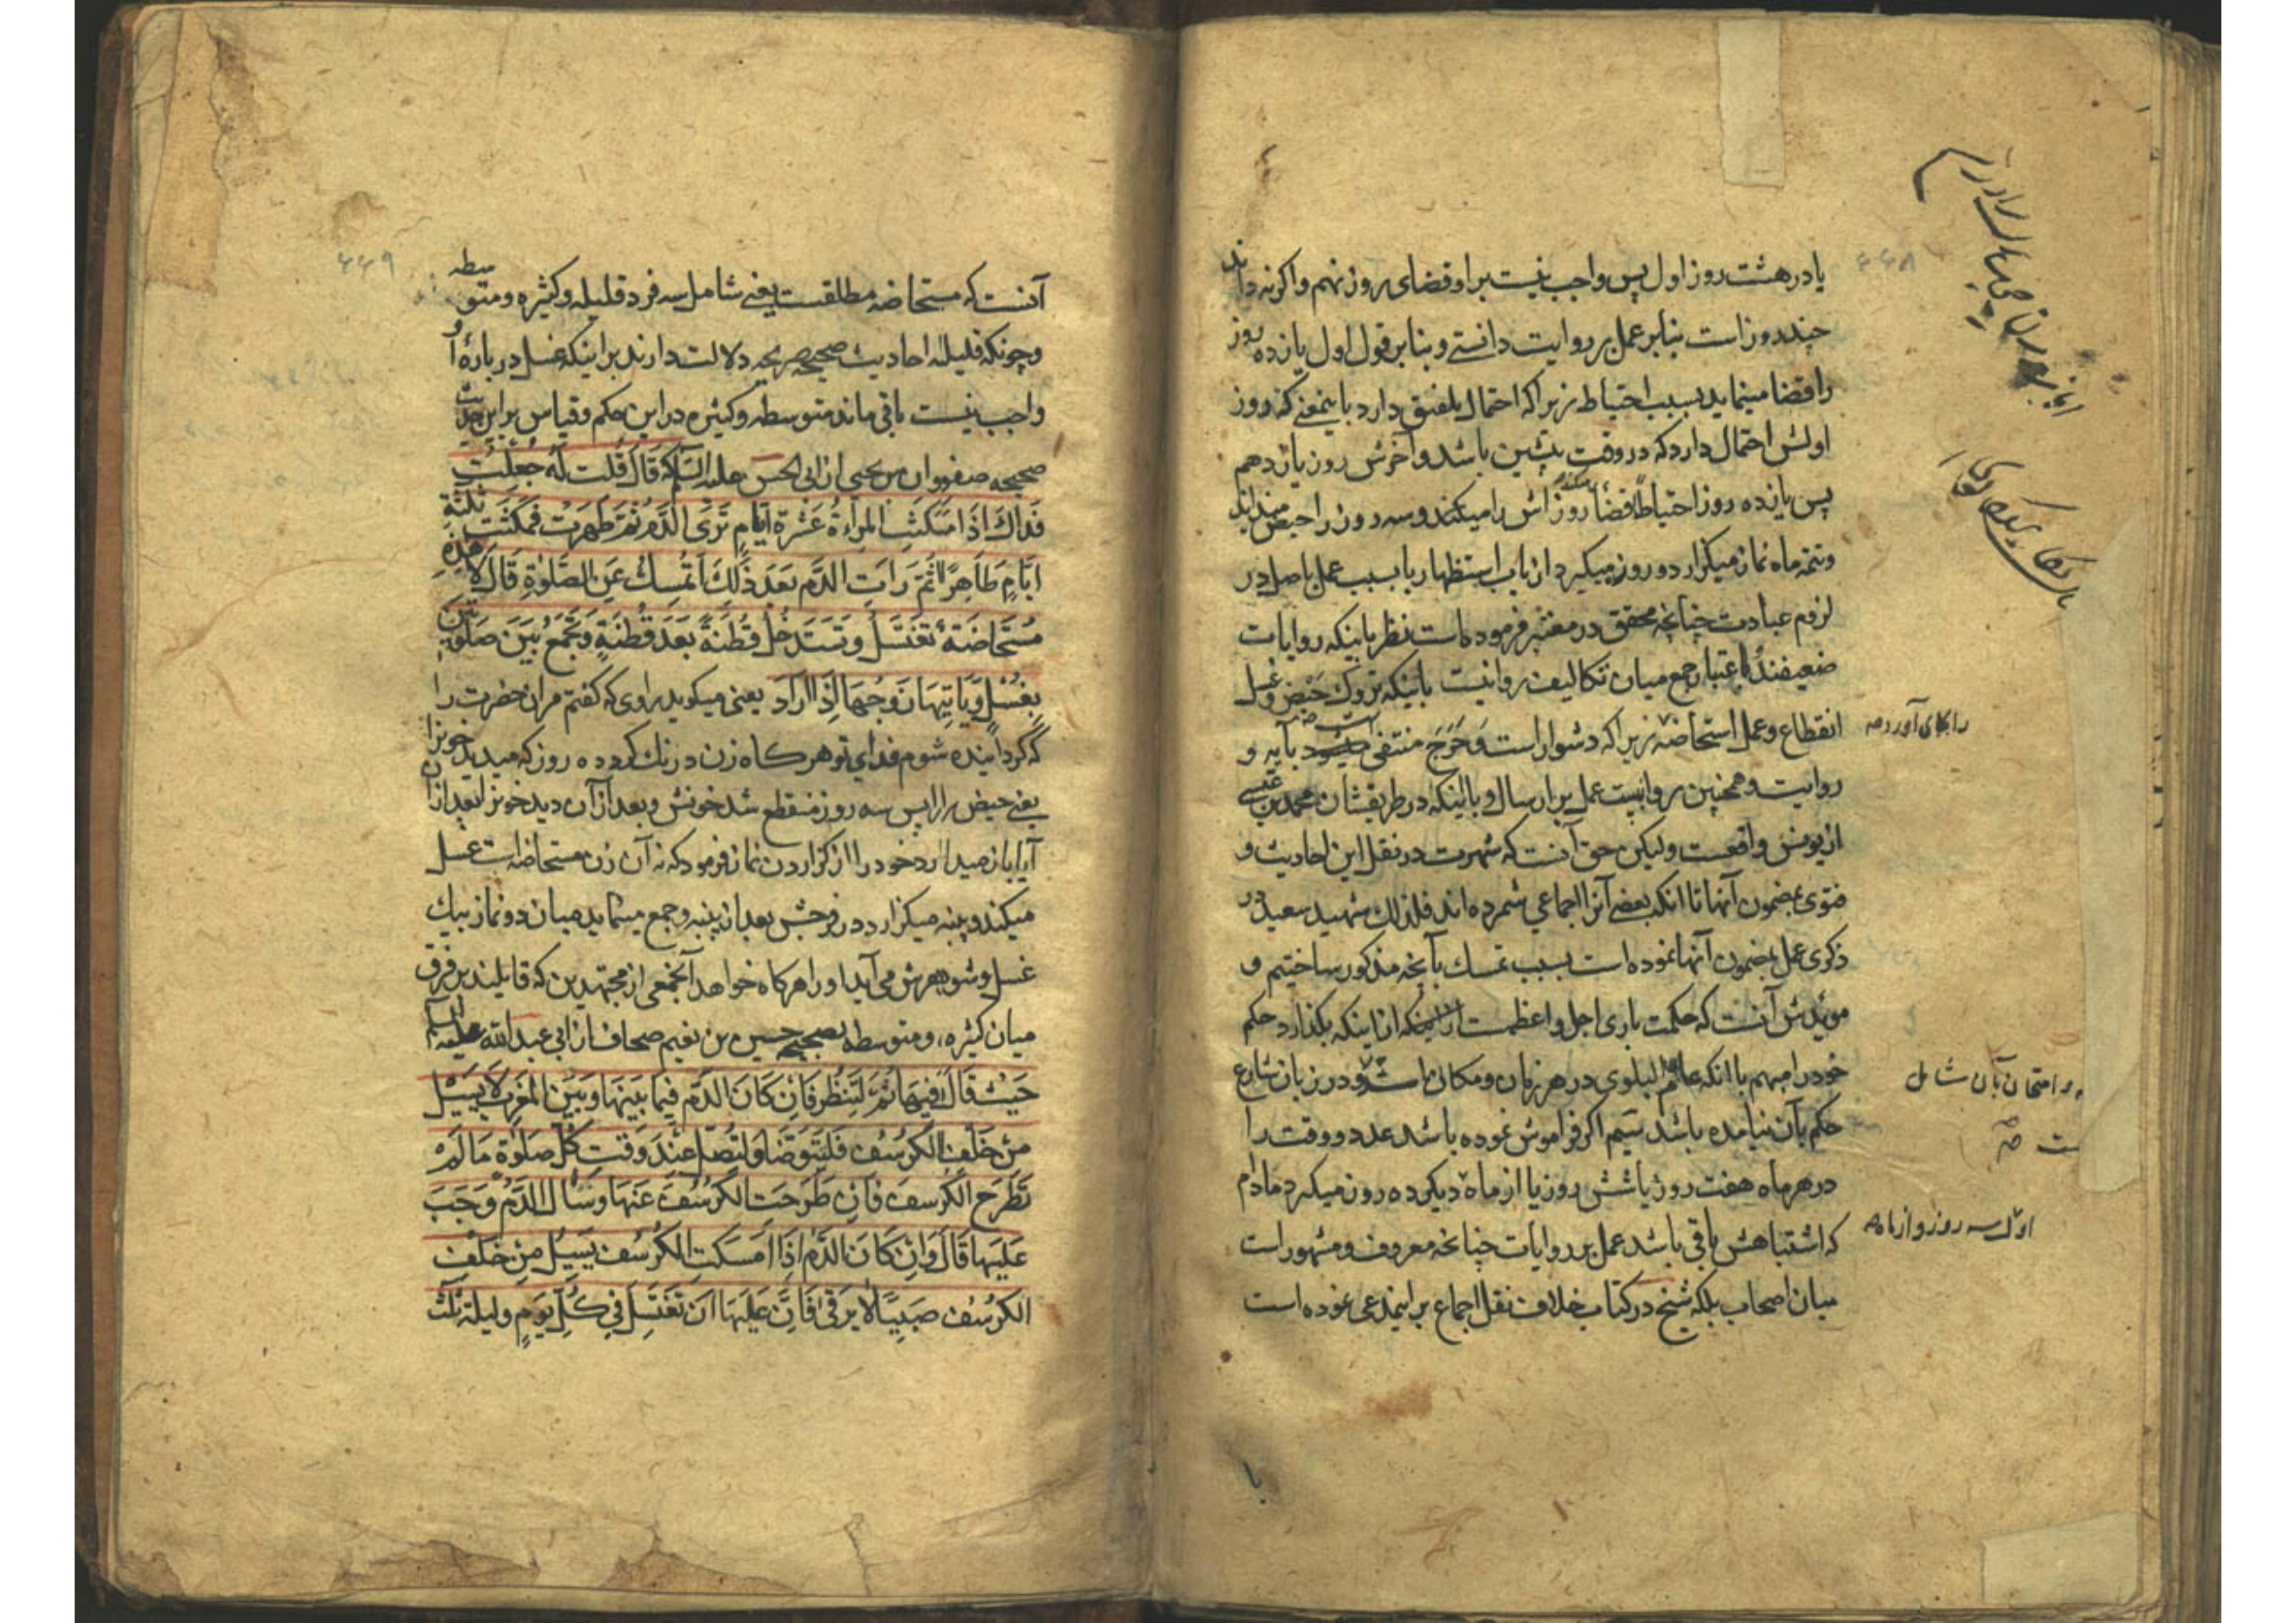 ۴۴۸
یا در هشت روز اول پس واجب نیست بر او قضای روز نهم واکر نه داند
چند روز است بنابر عمل بر روایت دانستے و بنابر قول اول یازده روز
را قضا مینماید بسبب احتیاط زیرا که احتمال تلفیق دارد باینمعنے که روز
اولش احتمال دارد که در وقت پیشین باشد و آخرش روز یازدهم
پس یازده روز احتیاطاً قضأ روز اش را میکند و سه روز را حیض میداند
و تتمه ماه نماز میکزارد و روزه میکیرد از باب استظهار یا بسبب عمل باصل در
لزوم عبادت چنانچه محقق در معتبر فرموده است نظر باینکه روایات
ضعیفند و باعتبار جمع میان تکالیف روا نیست باینکه تروک حیض و غسل
انقطاع و عمل استحاضه زیرا که دشوار است وَحَرَج منتفی است بآیه و
روایت و همچنین روا نیست عمل بر ارسال و باینکه در طریقشان محمد بن عیسی
از یونس واقعست ولیکن حق آنست که شهرت در نقل این احادیث و
فتوی بمضمون آنها تا آنکه بعضے آنرا اجماعي شمرده اند فلذلك شهید سعید در
ذکری عمل بمضمون آنها نموده است بسبب تمسك بآنچه مذکور ساختیم و
مویدش آنست که حکمت باری اجل و اعظمست از اینکه بکذارد حکم
خود را مبهم با آنکه عام البلوی در هر زمان و مکان است و در زبان شارع
حکم بآن نیامده باشد سیم اکر فراموش نموده باشد عدد و وقت را
در هر ماه هفت روز یا شش روز یا از ماه دیکر ده روز میکیرد مادام
که اشتباهش باقی باشد عمل بر روایات چنانچه معروف و مشهور است
میان اصحاب بلکه شیخ در کتاب خلاف نقل اجماع بر اینمدعی نموده است
را بجای آورد صه
و امتحان بآن شامل
ست صه
اول سه روز و از ماه
با
۴۴۹
آنست که مستحاضه مطلقست یعنے شامل سه فرد قلیله و کثیره و متوسطه
و چونکه قلیله احادیث صحیحه صریحه دلالت دارند بر اینکه غسل در بارۀ او
واجب نیست باقی ماند متوسطه و کثیره در این حکم و قیاس بر این حدیث
صحیحه صفوان بن یحیی از ابی الحسن علیه السلام که قَالَ قُلت لَه جُعِلْتُ
فَداكَ اذَا مَكَثَتِ المَرأةُ عَشْرَةَ ايَّامٍ تَرَى الدَّمَ ثُمَّ طَهرَتْ فمَكَثَت ثلثَة
ايَّامٍ طَاهِرًا ثُمَّ رَاتِ الدَّم بعَدَ ذَلِكَ أتُمسِكُ عَنِ الصَّلوٰةِ قَالَ لا هذِهِ
مُستَحاضَة تَغتَسَلُ وتَستَدخل قُطنَةً بَعدَ قُطنَةٍ وتَجمَعُ بَيْنَ صَلوتَين
بِغُسْلٍ وَيَاتِيهَا زَوجُهَا اِذَا ارَادَ یعنی میکوید راوی که کفتم مر آن حضرت را
که کردانیده شوم فدای تو هرکاه زن درنك کرد ده روز که میدید خونرا
یعنے حیض را پس سه روز منقطع شد خونش و بعد از آن دید خونرا بعد از آن
آیا باز میدارد خود را از کزاردن نماز فرمود که نه آن زن مستحاضه است غسل
میکند و پنبه میکزارد در فرجش بعد از پنبه و جمع مینماید میان دو نماز بیك
غسل و شوهرش می آید او را هرکاه خواهد آنجمعی از مجتهدین که قایلند بر فرق
میان کثیره و متوسطه بصحیح حسین بن نعیم صحاف از ابی عبد الله علیه السلام
حَيْث قَالَ فيهَا ثُمَّ لْتَنظُر فَاِن كَانَ الدَّم فِيمَا بَينَهَا وَبَيْنَ المَغْرِب لَا يَسَيْل
مِنْ خَلْفِ الكُرسُفِ فَلتَتَوَضَّا وَلتُصَلِّ عِنْدَ وَقتِ كُلِّ صَلَوٰة مَا لَمْ
تَطرَح الكُرسفَ فَاِن طَرحَت الكُرسُفَ عَنهَا وَسَال الدَّمُ وَجَبَ
عَلَيهَا قَالَ وَاِنْ كَانَ الدَّم اِذَا امسَكَتِ الكُرسُف يَسِيلُ مِنْ خَلْف
الكُرسُف صَبِيبًا لا يَرقى فَاِنَّ عَلَيهَا اَنْ تَغتَسِلَ فِي كُلِّ يَوَمٍ وليلة ثلث